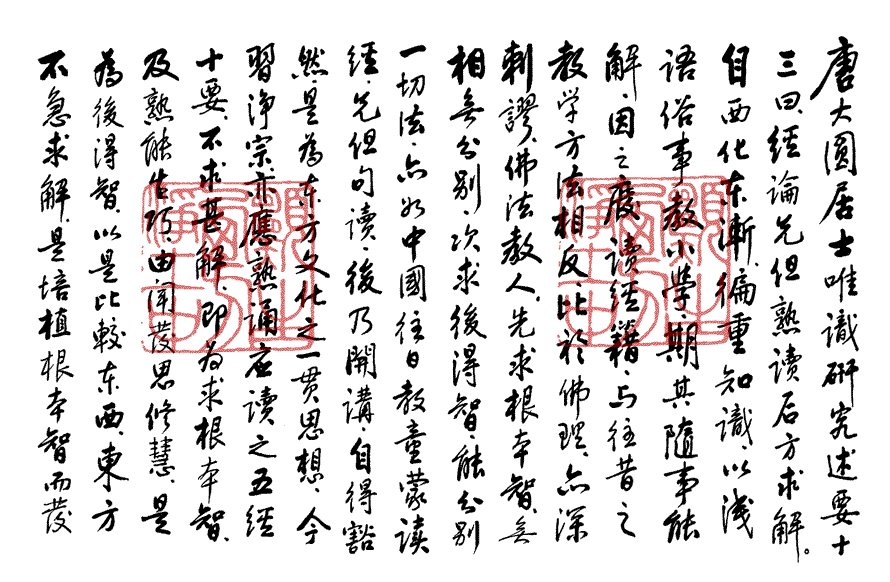 唐大圆居士唯識研究述要十
三曰、經論先但熟读后方求解。
自西化东漸、徧重知識、以浅
語俗事教小學、期其隨事能
解、因之废读经籍、与往昔之
教学方法相反、比於佛理、亦深
刺謬、佛法教人、先求根本智、無
相無分别、次求後得智、能分别
一切法、亦如中國往日教童蒙读
經、先但句读、後乃開講、自得豁
然、是為东方文化之一贯思想、今
習净宗亦應熟誦应读之五经
十要、不求甚解、即为求根本智、
及熟能生巧、由闻發思修慧、是
為後得智、以是比較东西、東方
不急求解、是培植根本智而發